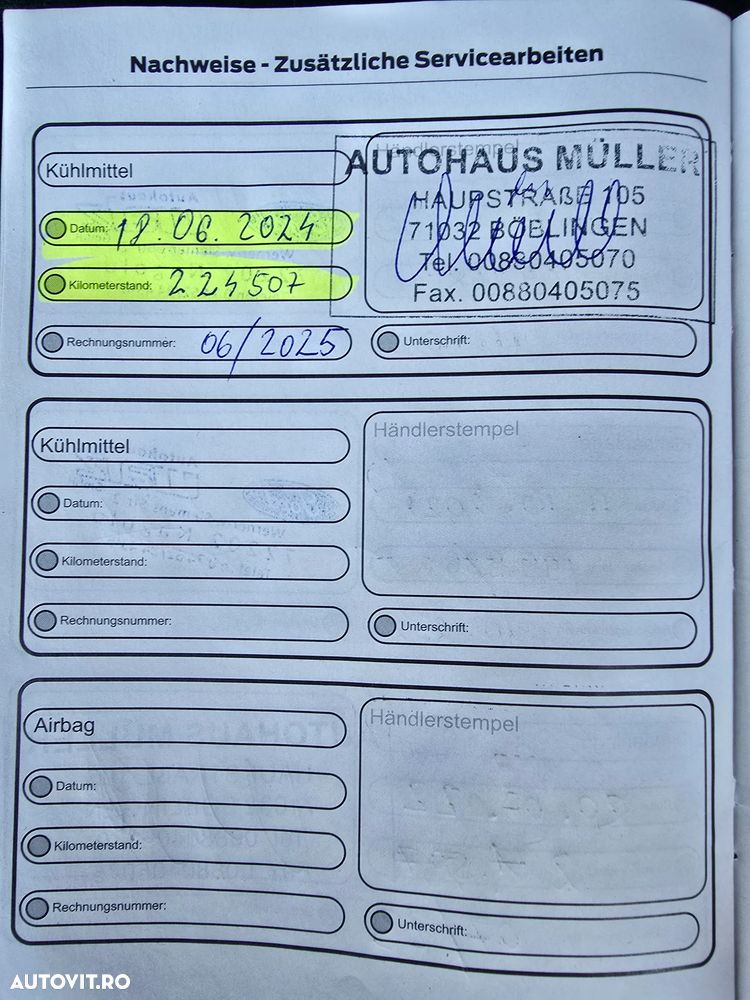 Nachweise - Zusätzliche Servicearbeiten
Kühlmittel
Händlerstempel
AUTOHAUS MÜLLER
HAUPSTRAßE 105
71032 BÖBLINGEN
Tel. 00880405070
Fax. 00880405075
Datum: 18.06.2024
Kilometerstand: 224507
Rechnungsnummer: 06/2025
Unterschrift:
Kühlmittel
Händlerstempel
Datum:
Kilometerstand:
Rechnungsnummer:
Unterschrift:
Airbag
Händlerstempel
Datum:
Kilometerstand:
Rechnungsnummer:
Unterschrift:
AUTOVIT.RO